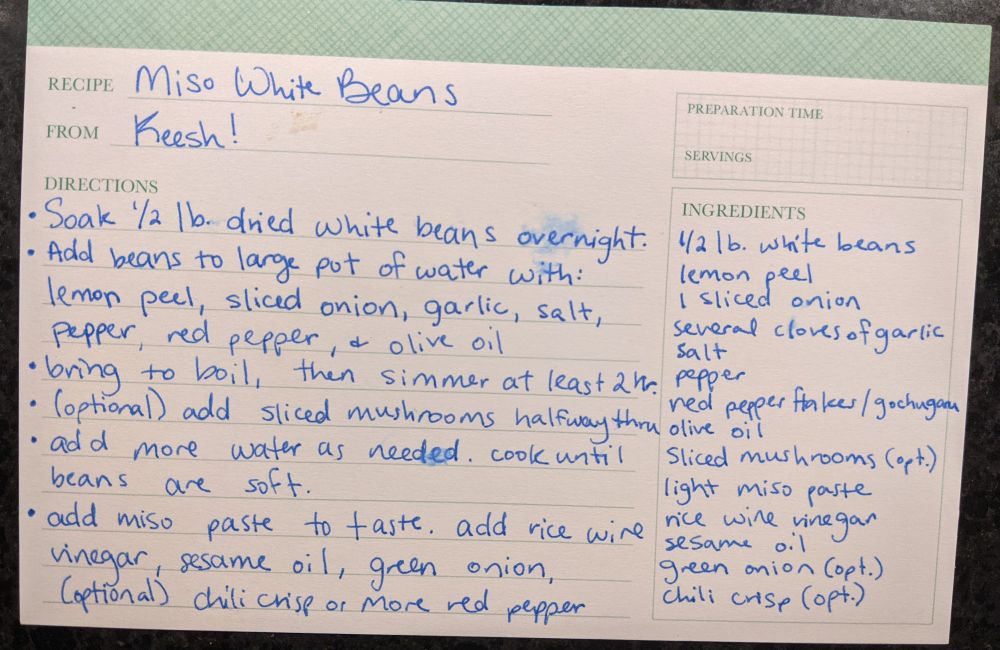 RECIPE Miso White Beans
FROM Keesh!
PREPARATION TIME
SERVINGS
DIRECTIONS
• Soak 1/2 lb. dried white beans overnight.
• Add beans to large pot of water with:
lemon peel, sliced onion, garlic, salt,
pepper, red pepper, & olive oil
• bring to boil, then simmer at least 2 hr.
• (optional) add sliced mushrooms halfway thru
• add more water as needed. cook until
beans are soft.
• add miso paste to taste. add rice wine
vinegar, sesame oil, green onion,
(optional) chili crisp or more red pepper
INGREDIENTS
1/2 lb. white beans
lemon peel
1 sliced onion
several cloves of garlic
salt
pepper
red pepper flakes/gochugaru
olive oil
Sliced mushrooms (opt.)
light miso paste
rice wine vinegar
sesame oil
green onion (opt.)
chili crisp (opt.)